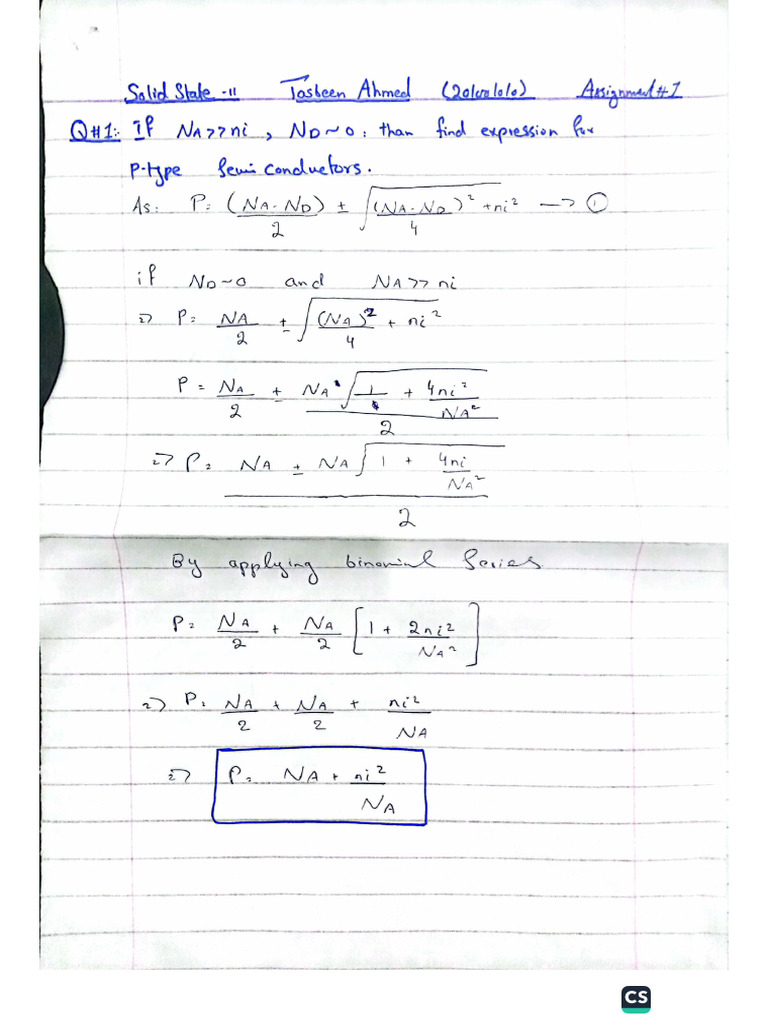 Solid State -II Tasbeen Ahmed Assignment #1
Q#1: If NA>>ni, ND~0: than find expression for
P-type Semi conductors.
As: P = (NA-ND)/2 ± √((NA-ND)²/4 + ni²) → ①
if ND~0 and NA>>ni
=> P = NA/2 ± √((NA)²/4 + ni²)
P = NA/2 ± NA√(1 + 4ni²/NA²)/2
=> P = (NA ± NA√(1 + 4ni/NA²))/2
By applying binomial Series.
P = NA/2 + NA/2 [1 + 2ni²/NA²]
=> P = NA/2 + NA/2 + ni²/NA
=> P = NA + ni²/NA
CS